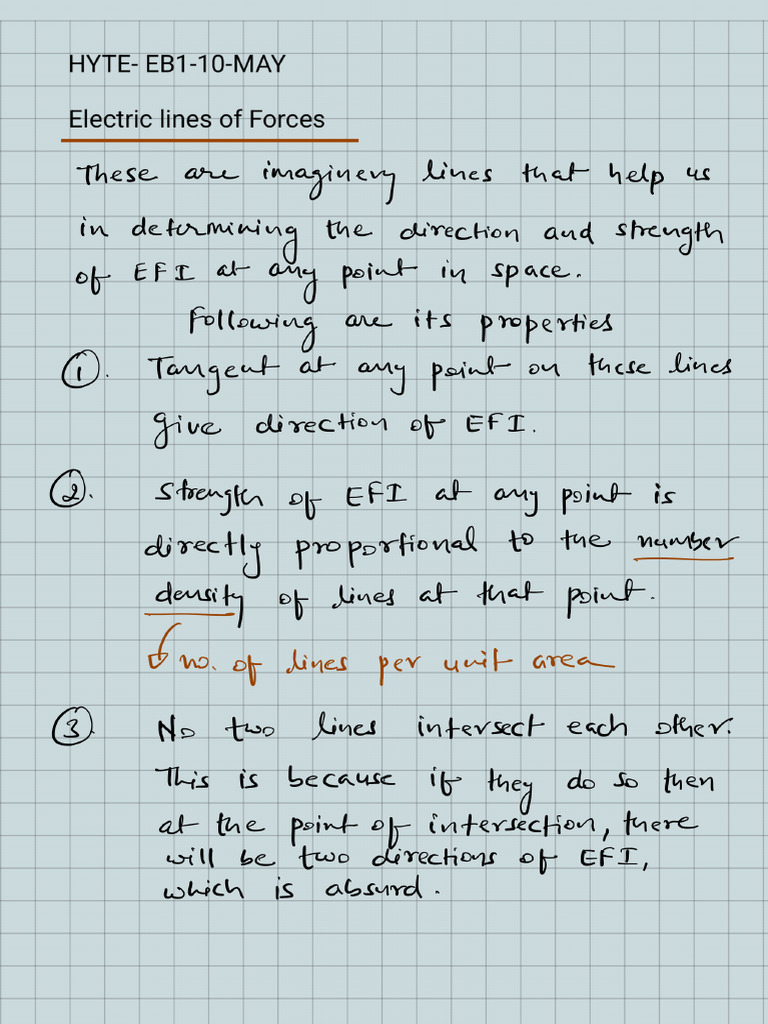 HYTE- EB1-10-MAY
Electric lines of Forces
These are imaginery lines that help us
in determining the direction and strength
of EFI at any point in space.
Following are its properties
1. Tangent at any point on these lines
give direction of EFI.
2. Strength of EFI at any point is
directly proportional to the number
density of lines at that point.
no. of lines per unit area
3. No two lines intersect each other.
This is because if they do so then
at the point of intersection, there
will be two directions of EFI,
which is absurd.